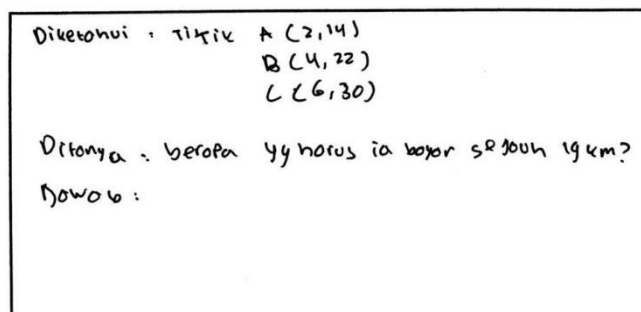 Diketahui : Titik A (2,14)
B (4,22)
C (6,30)
Ditanya : berapa yg harus ia bayar sejauh 19 km?
Jawab :